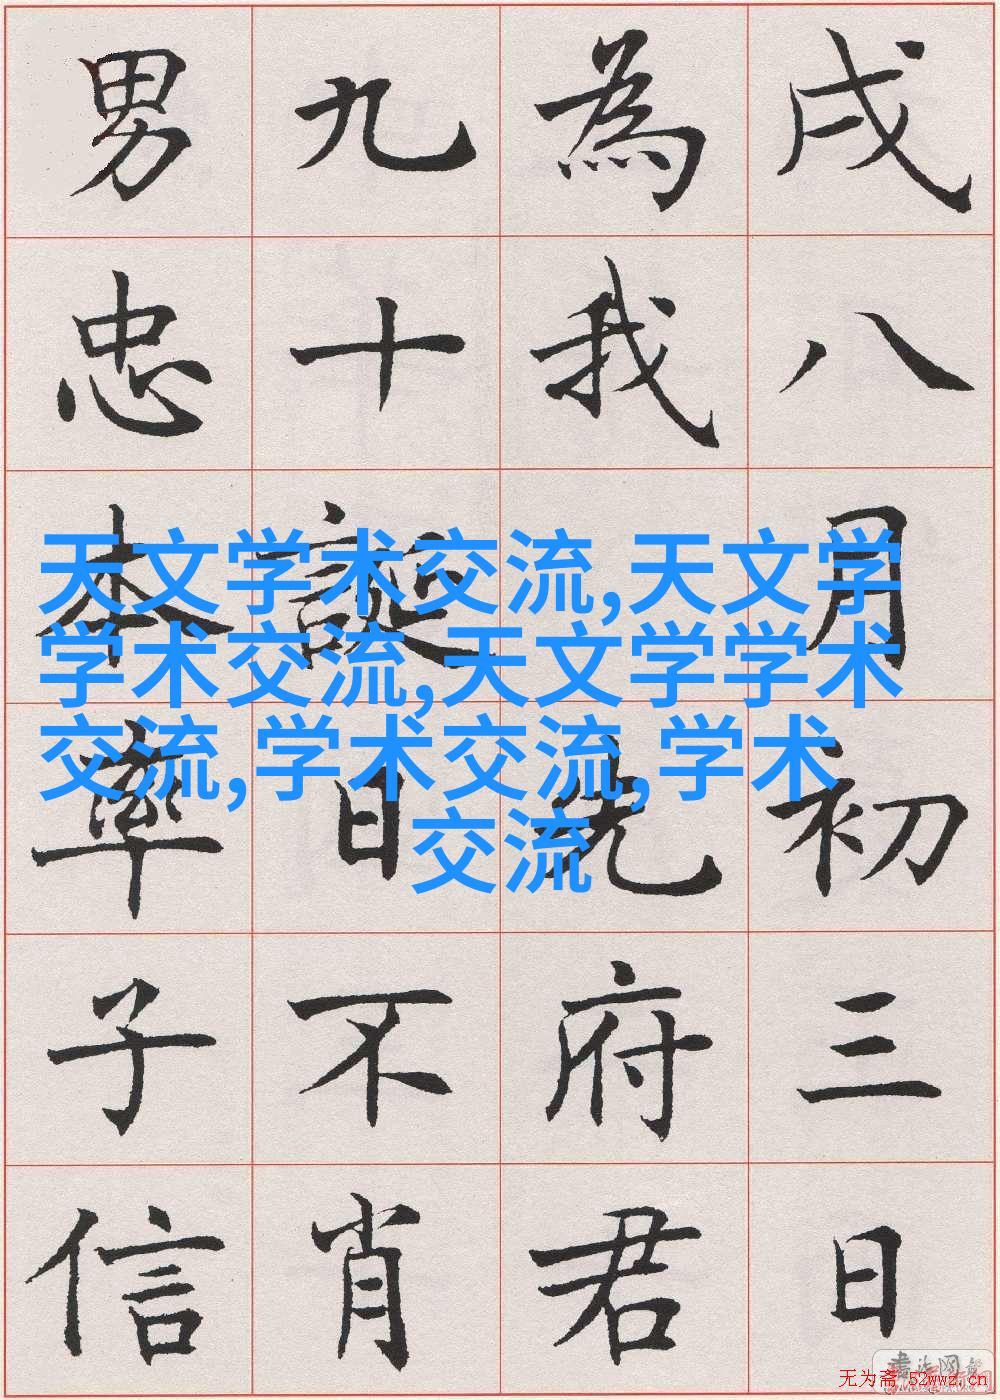 戌八月初三日
為我先府君
九十誕日不肖
男忠本率子信
天文学术交流,天文学
学术交流,天文学学术
交流,学术交流,学术
交流
无为斋 52wwz.cn